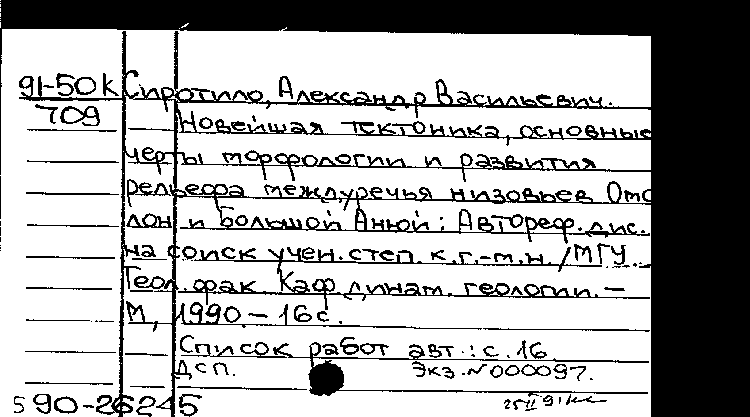 91-50к Сиротило, Александр Васильевич.
709
Новейшая тектоника, основные
черты морфологии и развития
рельефа междуречья низовьев Омо
лон и Большой Анюй : Автореф. дис.
на соиск учен. степ. к.г.-м.н. / МГУ.
Геол. фак. Каф динам. геологии. –
М, 1990. – 16 с.
Список работ авт. : с. 16
Дсп. Экз. N 000097.
5 90-26245